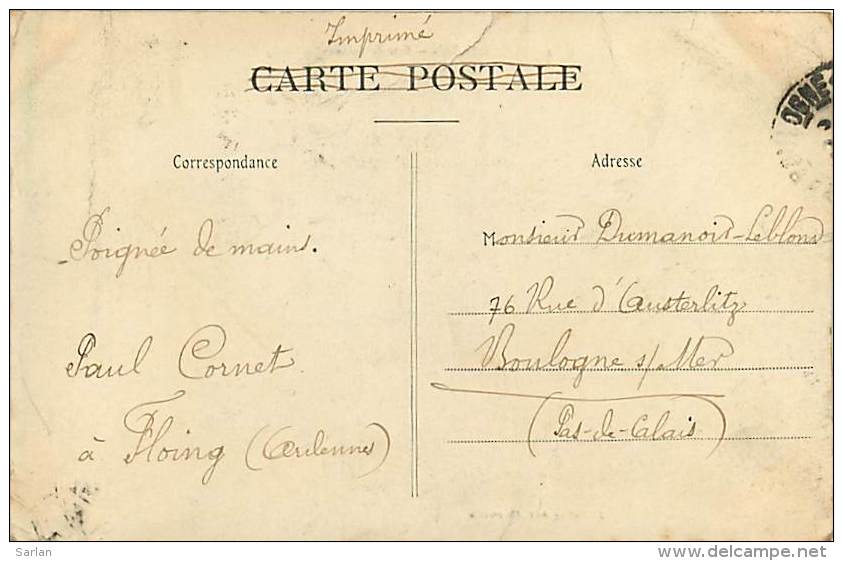 Imprimé
CARTE POSTALE
Correspondance
Poignée de mains.
Paul Cornet
à Floing (Ardennes)
Adresse
Monsieur Dumanoir-Leblond
76 Rue d'Austerlitz
Boulogne s/ Mer
(Pas-de-Calais)
OGNE
Sarlan
www.delcampe.net